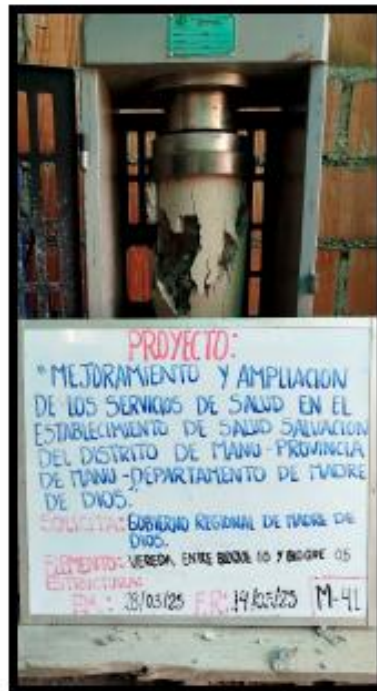 PROYECTO:
"MEJORAMIENTO Y AMPLIACION
DE LOS SERVICIOS DE SALUD EN EL
ESTABLECIMIENTO DE SALUD SALVACION
DEL DISTRITO DE MANU-PROVINCIA
DE MANU-DEPARTAMENTO DE MADRE
DE DIOS."
SOLICITA: GOBIERNO REGIONAL DE MADRE DE
DIOS.
ELEMENTO: VEREDA ENTRE BLOQUE Y BLOQUE 05
ESTRUCTURAL:
/03/25 F.R: 14/ /25 M-41